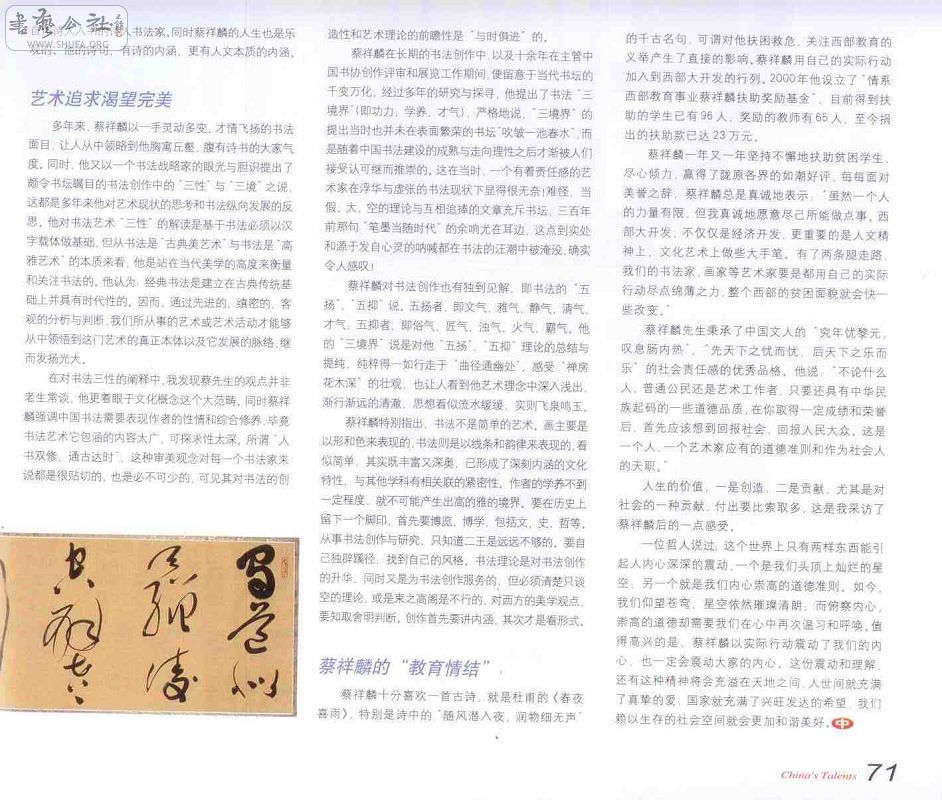 书艺公社
WWW.SHUFA.ORG
人书法家,同时蔡祥麟的人生也是乐
观的。他的诗句,有诗的内涵,更有人文本质的内涵。
艺术追求渴望完美
多年来,蔡祥麟以一手灵动多变,才情飞扬的书法
面目,让人从中领略到他胸寓丘壑,腹有诗书的大家气
度。同时,他又以一个书法战略家的眼光与胆识提出了
颇令书坛瞩目的书法创作中的“三性”与“三境”之说,
这都是多年来他对艺术现状的思考和书法纵向发展的反
思。他对书法艺术“三性”的解读是基于书法必须以汉
字载体做基础,但从书法是“古典美艺术”与书法是“高
雅艺术”的本质来看,他是站在当代美学的高度来衡量
和关注书法的。他认为,经典书法是建立在古典传统基
础上并具有时代性的。因而,通过先进的,缜密的,客
观的分析与判断,我们所从事的艺术或艺术活动才能够
从中领悟到这门艺术的真正本体以及它发展的脉络,继
而发扬光大。
在对书法三性的阐释中,我发现蔡先生的观点并非
老生常谈,他更着眼于文化概念这个大范畴,同时蔡祥
麟强调中国书法需要表现作者的性情和综合修养,毕竟
书法艺术它包涵的内容太广,可探求性太深。所谓“人
书双修,通古达时”,这种审美观念对每一个书法家来
说都是很贴切的,也是必不可少的,可见其对书法的创
造性和艺术理论的前瞻性是“与时俱进”的。
蔡祥麟在长期的书法创作中,以及十余年在主管中
国书协创作评审和展览工作期间,便留意于当代书坛的
千变万化,经过多年的研究与探寻,他提出了书法“三
境界”(即功力,学养,才气),严格地说,“三境界”的
提出当时也并未在表面繁荣的书坛“吹皱一池春水”,而
是随着中国书法建设的成熟与走向理性之后才渐被人们
接受认可继而推崇的。这在当时,一个有着责任感的艺
术家在浮华与虚张的书法现状下显得很无奈(难怪,当
假,大,空的理论与互相追捧的文章充斥书坛,三百年
前那句“笔墨当随时代”的余响尤在耳边,这点到实处
和源于发自心灵的呐喊都在书法的汪潮中被淹没,确实
令人感叹!
蔡祥麟对书法创作也有独到见解,即书法的“五
扬”,“五抑”说。五扬者,即文气,雅气,静气,清气,
才气,五抑者,即俗气,匠气,浊气,火气,霸气。他
的“三境界”说是对他“五扬”,“五抑”理论的总结与
提纯,纯粹得一如行走于“曲径通幽处”,感受“禅房
花木深”的壮观,也让人看到他艺术理念中深入浅出,
渐行渐远的清澈,思想看似流水缓缓,实则飞泉鸣玉。
蔡祥麟特别指出,书法不是简单的艺术。画主要是
以形和色来表现的,书法则是以线条和韵律来表现的,看
似简单,其实既丰富又深奥,已形成了深刻内涵的文化
特性,与其他学科有相关联的紧密性。作者的学养不到
一定程度,就不可能产生出高的雅的境界。要在历史上
留下一个脚印,首先要博览,博学,包括文,史,哲等。
从事书法创作与研究,只知道二王是远远不够的。要自
己独辟蹊径,找到自己的风格。书法理论是对书法创作
的升华,同时又是为书法创作服务的,但必须清楚只谈
空的理论,或是束之高阁是不行的,对西方的美学观点,
要知取舍明判断。创作首先要讲内涵,其次才是看形式。
蔡祥麟的“教育情结”
蔡祥麟十分喜欢一首古诗,就是杜甫的《春夜
喜雨》,特别是诗中的“随风潜入夜,润物细无声”
的千古名句,可谓对他扶困救危,关注西部教育的
义举产生了直接的影响。蔡祥麟用自己的实际行动
加入到西部大开发的行列。2000年他设立了“情系
西部教育事业蔡祥麟扶助奖励基金”,目前得到扶
助的学生已有96人,奖励的教师有65人,至今捐
出的扶助款已达23万元。
蔡祥麟一年又一年坚持不懈地扶助贫困学生,
尽心倾力,赢得了陇原各界的如潮好评,每每面对
美誉之辞,蔡祥麟总是真诚地表示,“虽然一个人
的力量有限,但我真诚地愿意尽己所能做点事。西
部大开发,不仅仅是经济开发,更重要的是人文精
神上,文化艺术上做些大手笔。有了两条腿走路,
我们的书法家,画家等艺术家要是都用自己的实际
行动尽点绵薄之力,整个西部的贫困面貌就会快一
些改变。”
蔡祥麟先生秉承了中国文人的“究年忧黎元,
叹息肠内热”,“先天下之忧而忧,后天下之乐而
乐”的社会责任感的优秀品格。他说,“不论什么
人,普通公民还是艺术工作者,只要还具有中华民
族起码的一些道德品质,在你取得一定成绩和荣誉
后,首先应该想到回报社会,回报人民大众。这是
一个人,一个艺术家应有的道德准则和作为社会人
的天职。”
人生的价值,一是创造,二是贡献,尤其是对
社会的一种贡献,付出要比索取多,这是我采访了
蔡祥麟后的一点感受。
一位哲人说过,这个世界上只有两样东西能引
起人内心深深的震动,一个是我们头顶上灿烂的星
空,另一个就是我们内心崇高的道德准则。如今,
我们仰望苍穹,星空依然璀璨清朗,而俯察内心,
崇高的道德却需要我们在心中再次温习和呼唤。值
得高兴的是,蔡祥麟以实际行动震动了我们的内
心,也一定会震动大家的内心。这份震动和理解,
还有这种精神将会充溢在天地之间,人世间就充满
了真挚的爱,国家就充满了兴旺发达的希望,我们
赖以生存的社会空间就会更加和谐美好。中
China's Talents 71